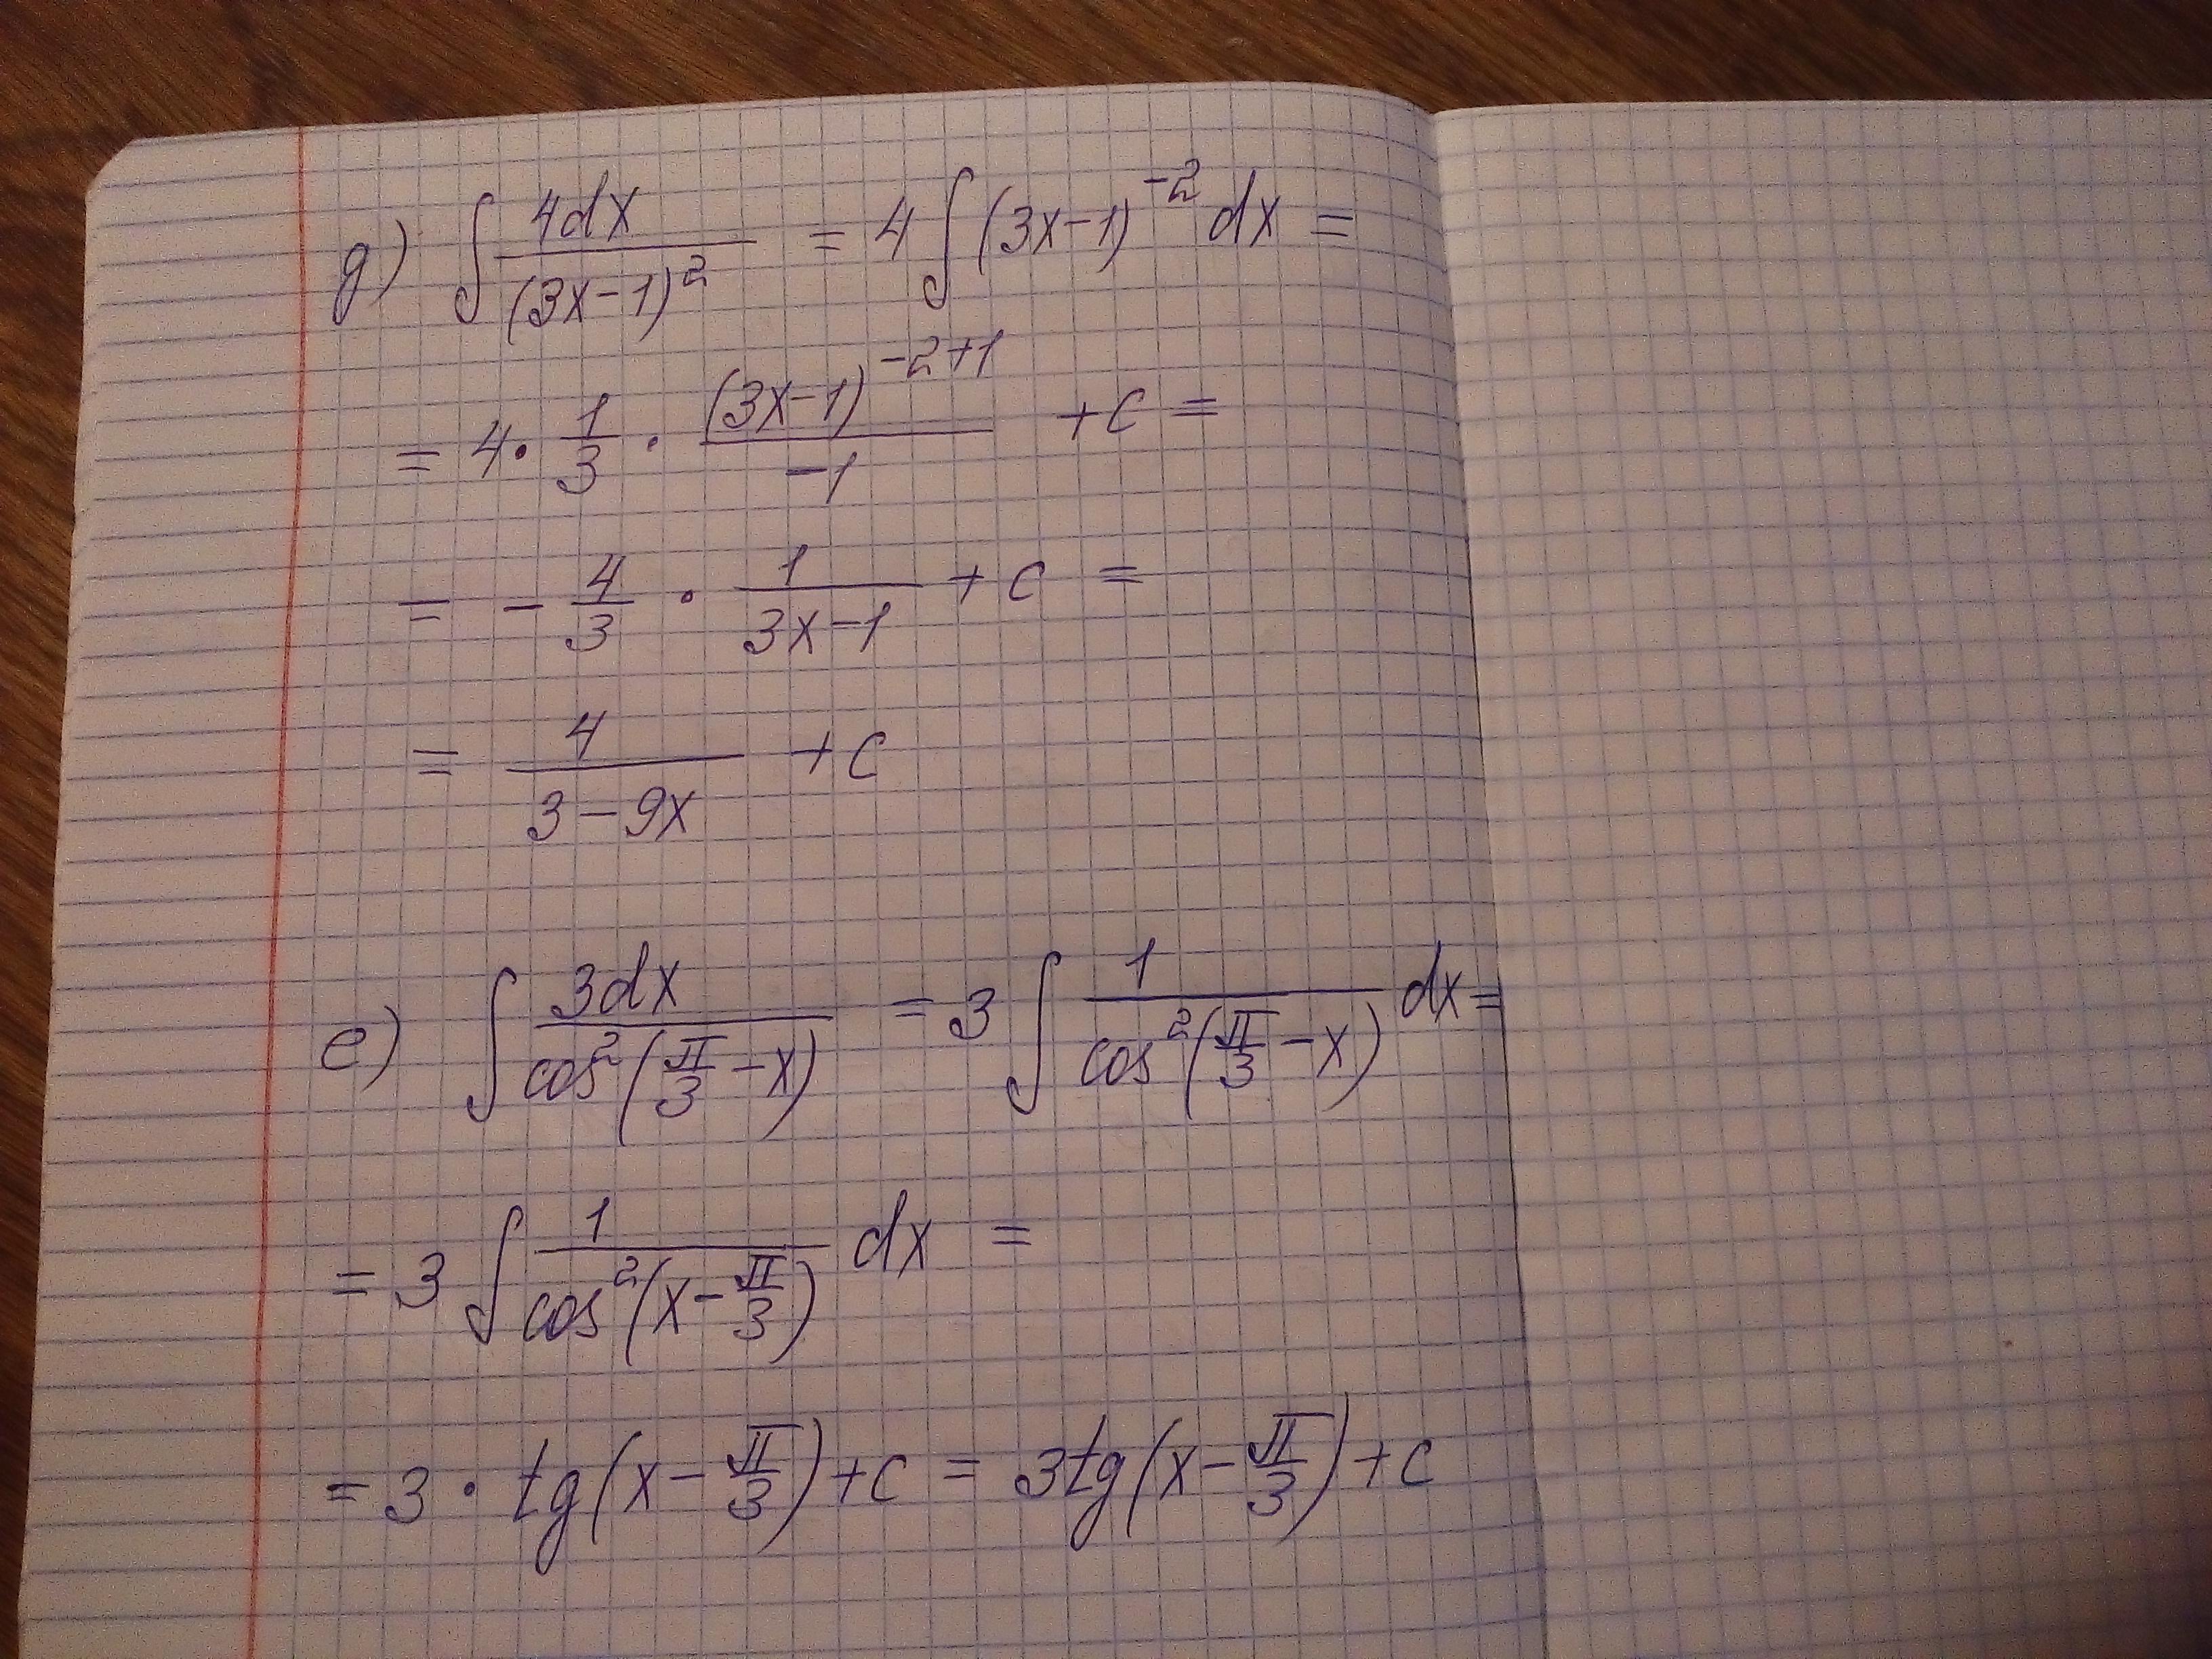 д) ∫ 4dx/(3x-1)² = 4 ∫ (3x-1)⁻² dx =
= 4 · 1/3 · (3x-1)⁻²⁺¹/-1 + c =
= - 4/3 · 1/3x-1 + c =
= 4/3-9x + c
е) ∫ 3dx/cos²(π/3 - x) = 3 ∫ 1/cos²(π/3 - x) dx =
= 3 ∫ 1/cos²(x - π/3) dx =
= 3 · tg(x - π/3) + c = 3tg(x - π/3) + c